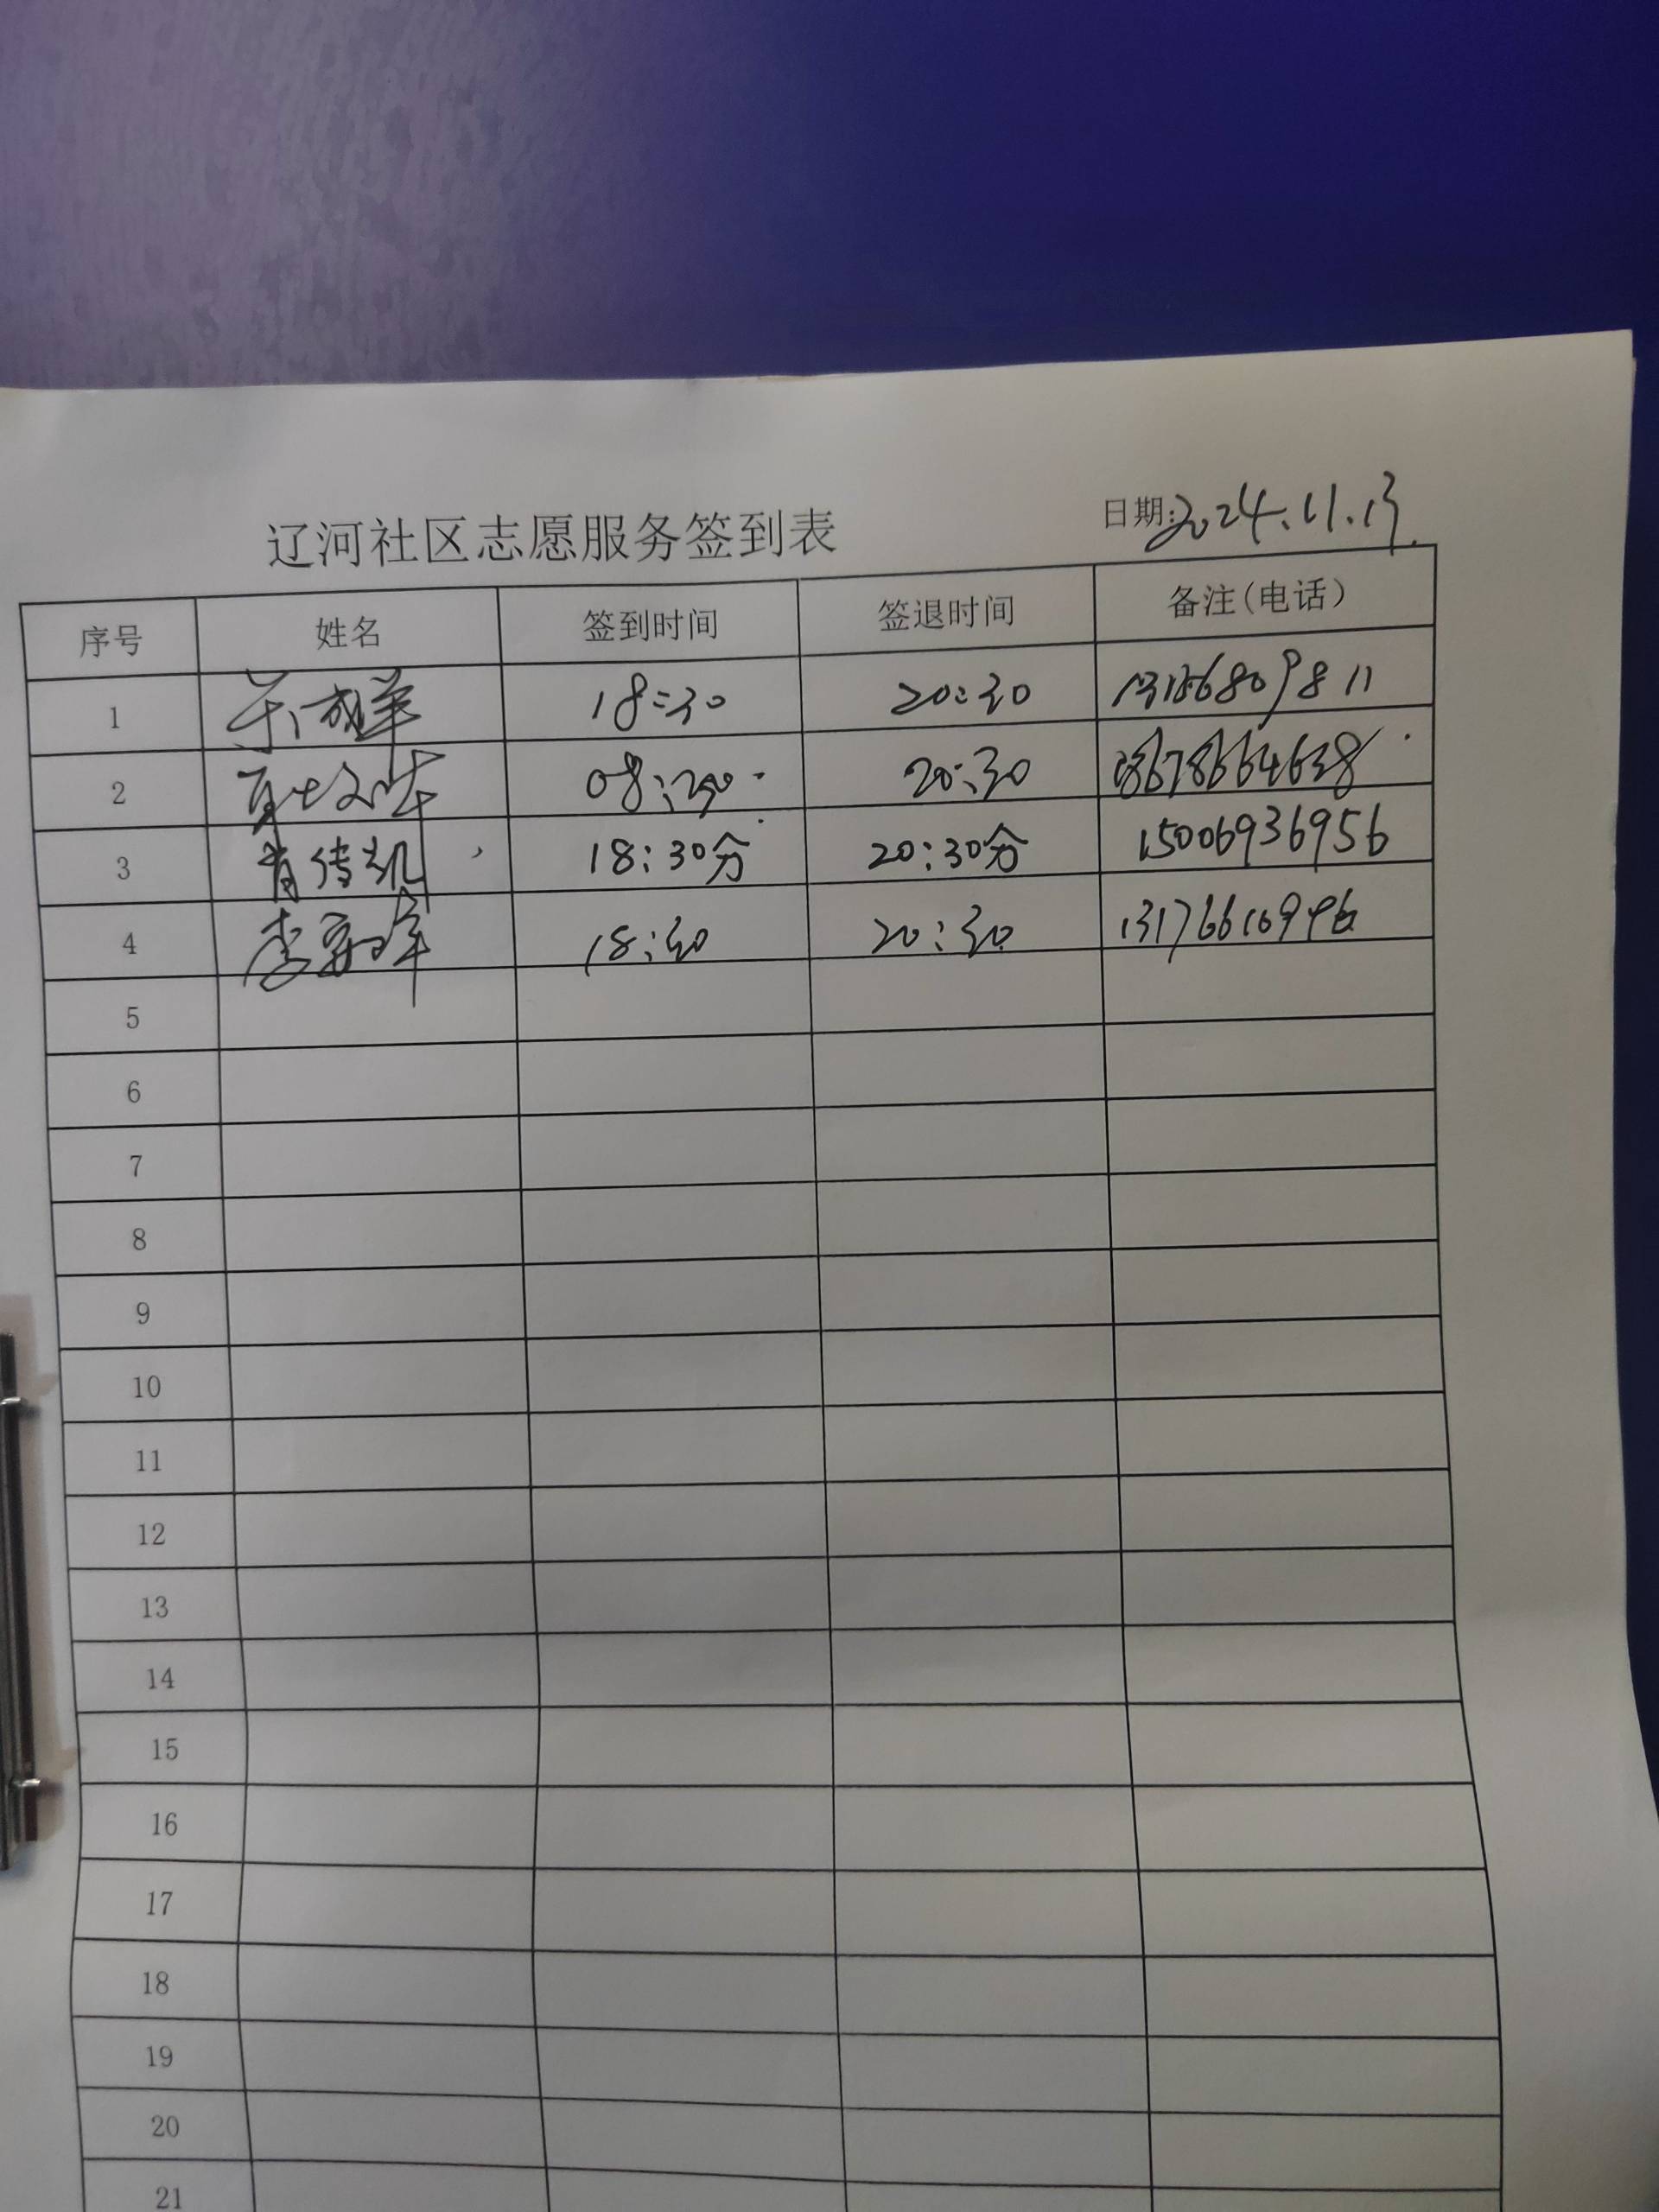 辽河社区志愿服务签到表 日期:2024.11.13
序号 姓名 签到时间 签退时间 备注(电话)
1 18:30 20:30
2 08:30 20:30
3 肖传凯 18:30分 20:30分 15006936956
4 李 18:30 20:30
5
6
7
8
9
10
11
12
13
14
15
16
17
18
19
20
21